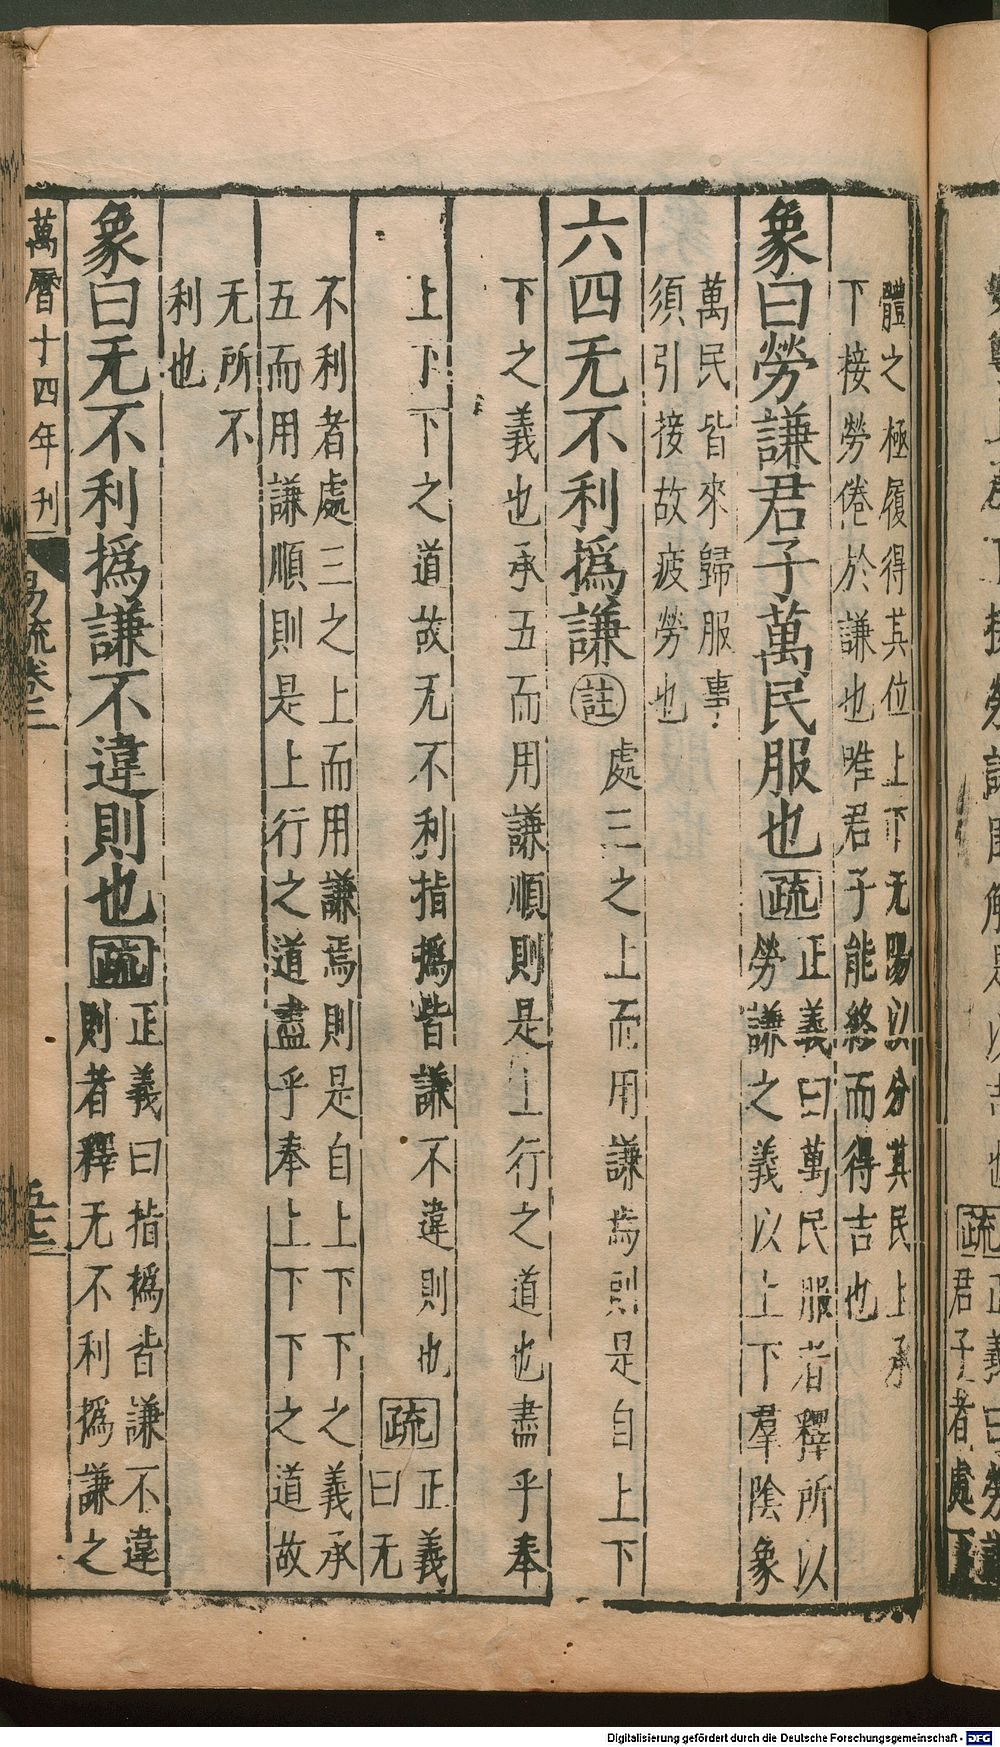 體之極履得其位上下无陽以分其民上承
下接勞倦於謙也唯君子能終而得吉也
象曰勞謙君子萬民服也疏正義曰萬民服者釋所以
勞謙之義以上下羣陰象
萬民皆來歸服事
須引接故疲勞也
六四无不利撝謙註處三之上而用謙焉則是自上下
下之義也承五而用謙順則是上行之道也盡乎奉
上下下之道故无不利指撝皆謙不違則也疏正義
曰无
不利者處三之上而用謙焉則是自上下下之義承
五而用謙順則是上行之道盡乎奉上下下之道故
无所不
利也
象曰无不利撝謙不違則也疏正義曰指撝皆謙不違
則者釋无不利撝謙之
萬曆十四年刊
易疏卷三
Digitalisierung gefördert durch die Deutsche Forschungsgemeinschaft - DFG